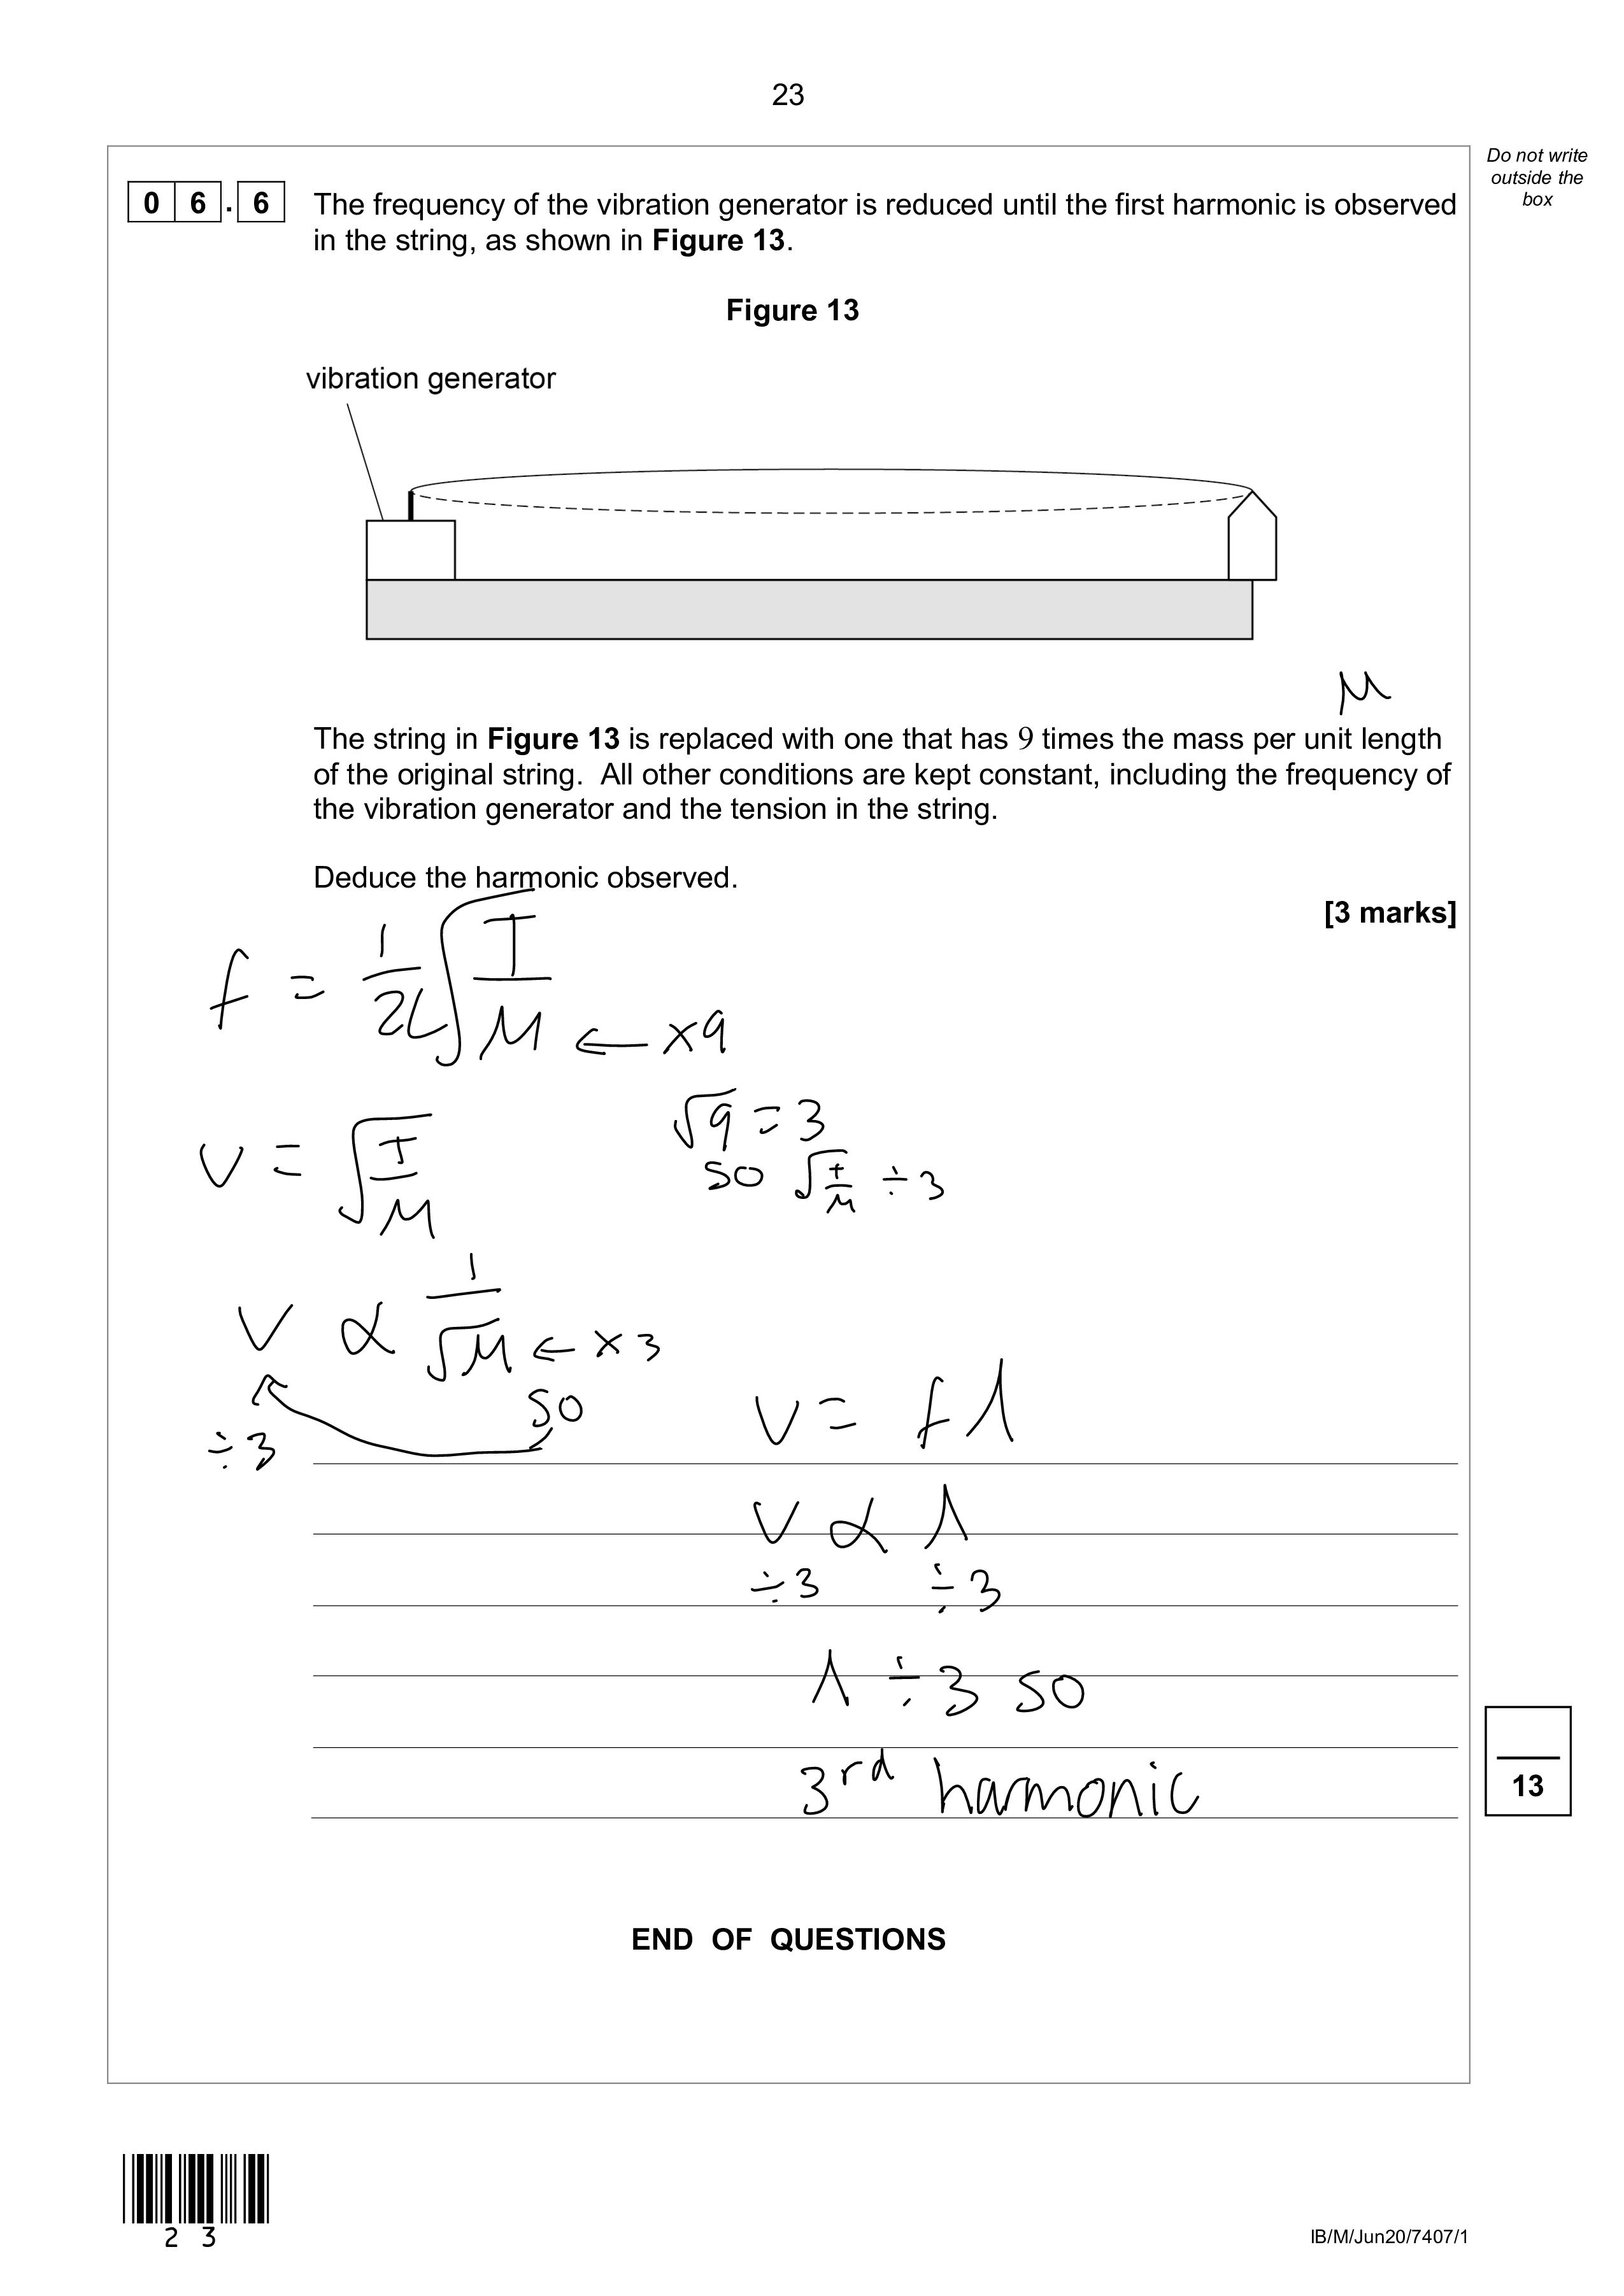 23
Do not write
outside the
box
0 6 . 6 The frequency of the vibration generator is reduced until the first harmonic is observed
in the string, as shown in Figure 13.
Figure 13
vibration generator
μ
The string in Figure 13 is replaced with one that has 9 times the mass per unit length
of the original string. All other conditions are kept constant, including the frequency of
the vibration generator and the tension in the string.
Deduce the harmonic observed.
[3 marks]
f = 1/2L √(T/μ) ← ×9
√9 = 3
v = √(T/μ)
so √(T/μ) ÷ 3
v ∝ 1/√μ ← × 3
so
÷3
v = fλ
v ∝ λ
÷3 ÷3
λ ÷ 3 so
3rd harmonic
13
END OF QUESTIONS
2 3
IB/M/Jun20/7407/1